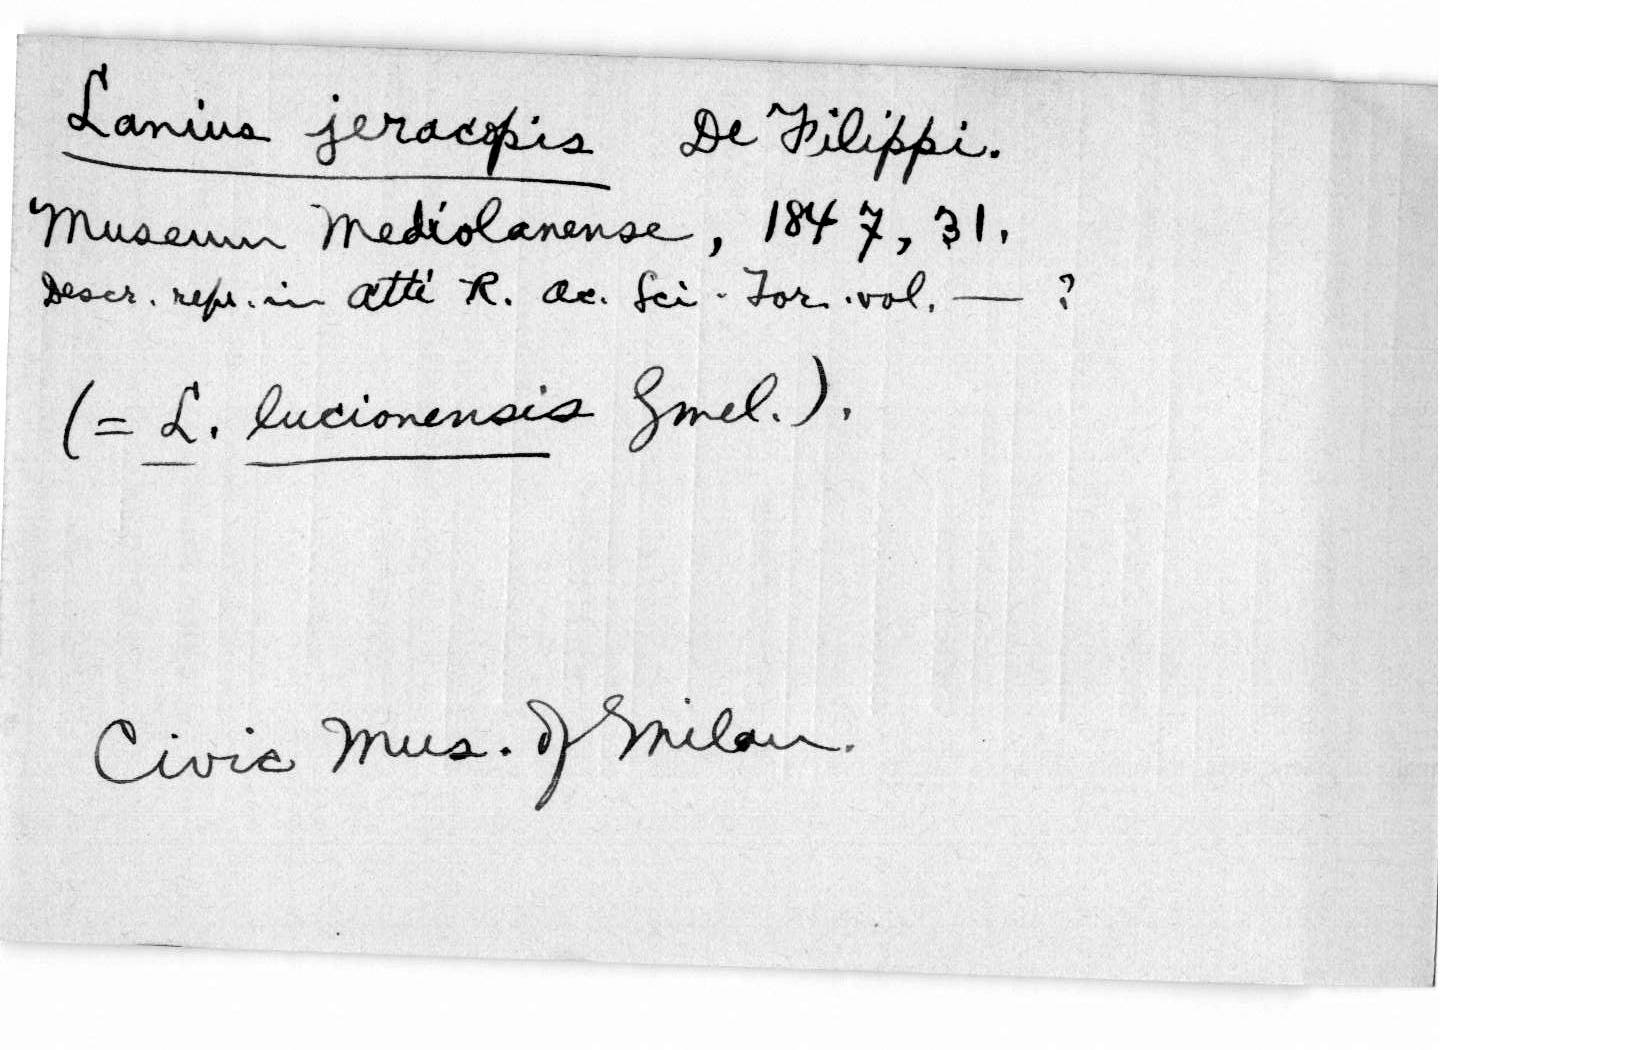 Lanius jeracopis De Filippi.
Museum Mediolanense, 1847, 31.
Descr. repr. in Atti R. Ac. Sci. Tor. vol. — ?
(= L. lucionensis Gmel.).
Civic Mus. of Milan.